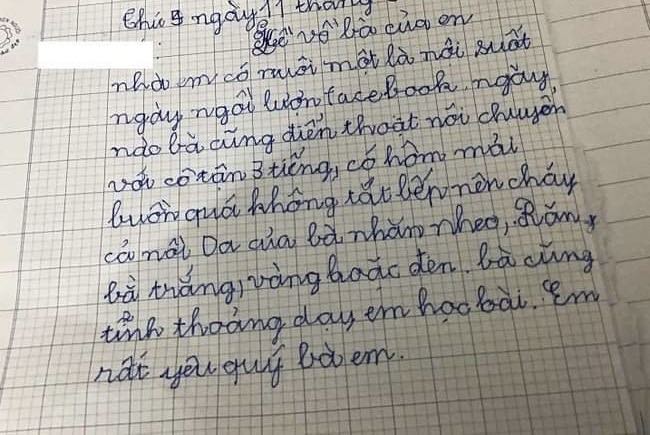 thứ 5 ngày 11 tháng
Kể về bà của en
nhà em có nuôi một là nôi suốt
ngày ngồi lướn facebook. ngày
nào bà cũng điển thoát nói chuyện
với cô tận 3 tiếng, có hôm mải
buôn quá không tắt bếp nên cháy
cả nồi Da của bà nhăn nheo, Răn
bà trắng, vàng hoặc đen. bà cũng
tỉnh thoảng dạy em học bài. Em
rất yêu quý bà em.